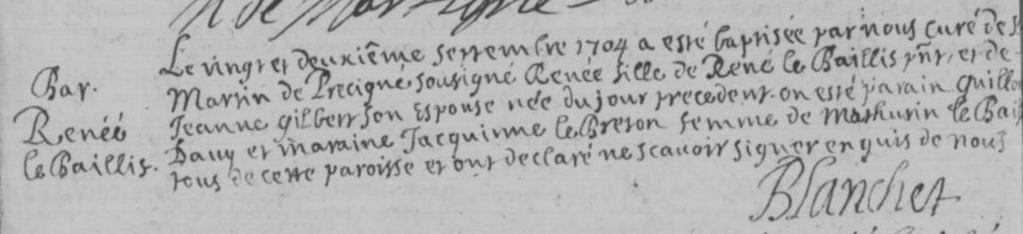 Bap.
Renéé
le Baillis.
Le vingt et deuxiême septembre 1704 a esté baptisée par nous Curé de St
Martin de Precigné sousigné Renée fille de René le Baillis pñt, et de
Jeanne Gilbert son Espouse née du jour precedent. on esté parain Guillo
Davy et maraine Jacquinne le Breton femme de Mathurin le Bail
tous de cette paroisse et ont declaré ne scavoir signer enquis de nous
Blanchet